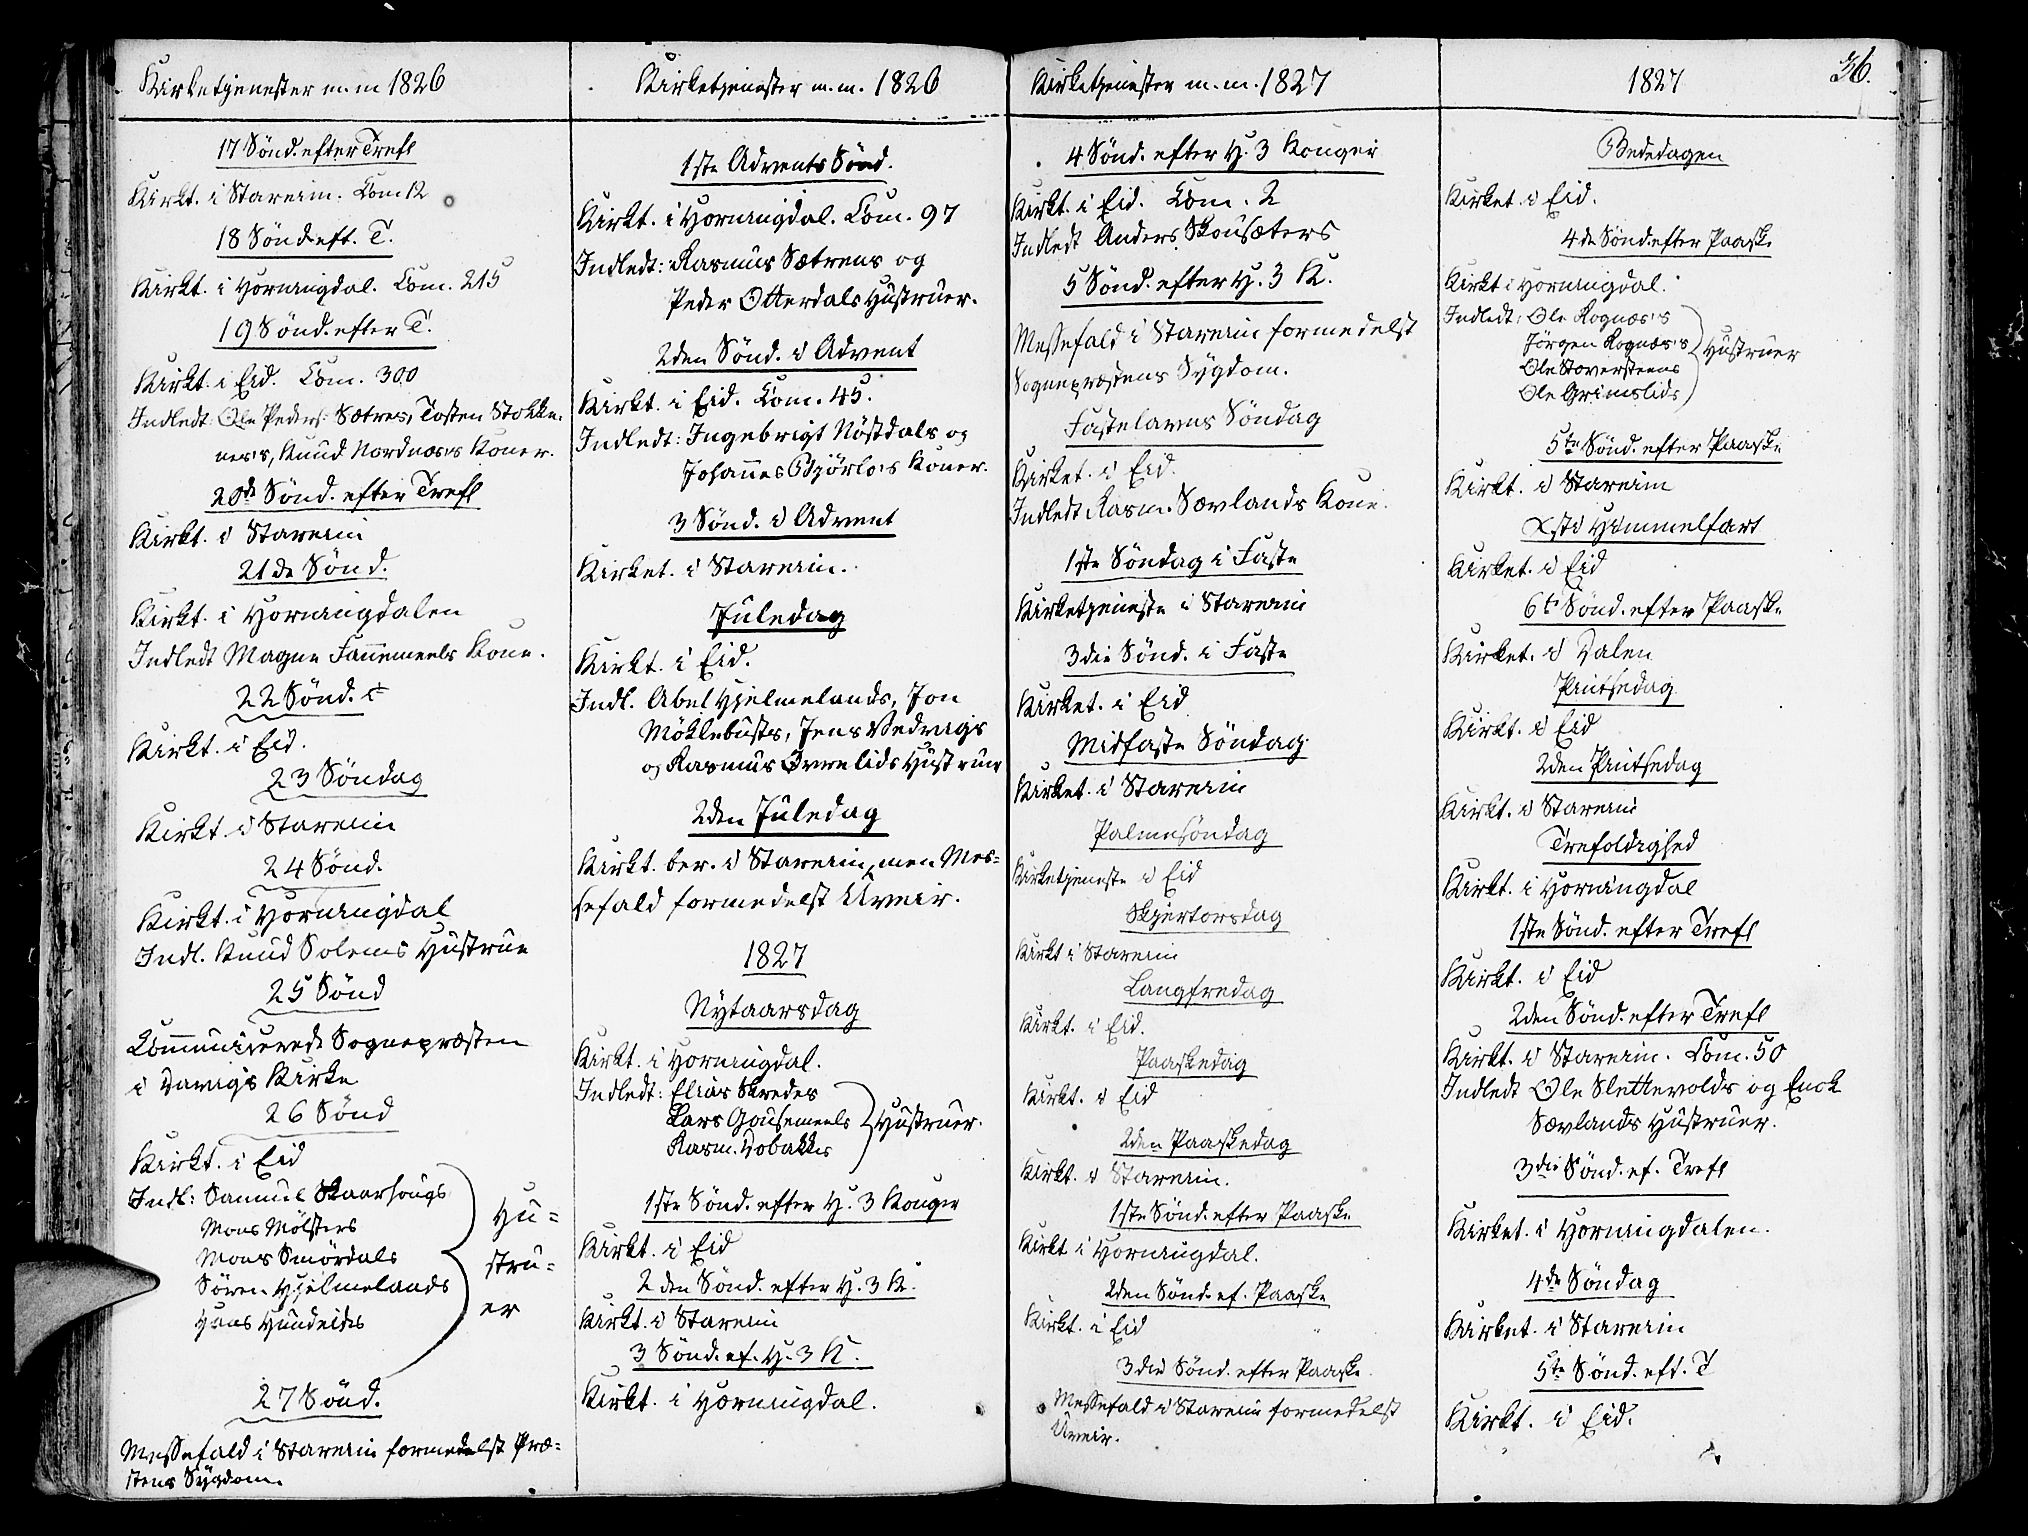 Kirketjenester m. m 1826
17 Sønd. efter Trefl
Kirkt. i Starein. Com 12
18 Sønd. eft. T.
Kirkt. i Horningdal. Com. 215
19 Sønd. efter T.
Kirkt. i Eid. Com. 300
Indledt Ole Peders: Sætres, Tosten Stokke-
nes's, Knud Nordnæs's Koner.
20de Sønd. efter Trefl
Kirkt. i Starein
21de Sønd.
Kirkt. i Horningdalen
Indledt Magne Fannemeels Kone.
22 Sønd.
Kirkt. i Eid.
23 Søndag
Kirkt. i Starein
24 Sønd.
Kirkt. i Horningdal
Indl. Knud Solems Hustrue
25 Sønd
Communicerede Sognepræsten
i Davigs Kirke
26 Sønd
Kirkt. i Eid
Indl: Samuel Skaarhougs
Mons Mølsters
Mons Smørdals
Søren Hjelmelands
Hans Hundeides
Hu-
stru-
er
27 Sønd.
Messefald i Starein formedelst Præ-
stens Sygdom.
Kirketjenester m. m. 1826
1ste Advents Sønd.
Kirkt. i Horningdal. Com. 97
Indledt: Rasmus Sætrens og
Peder Otterdals Hustruer.
2den Sønd. i Advent
Kirkt. i Eid. Com. 45.
Indledt: Ingebrigt Nøstdals og
Johannes Bjørlo's Koner.
3 Sønd. i Advent
Kirket. i Starein.
Juledag
Kirkt. i Eid.
Indl. Abel Hjelmelands, Jon
Møklebusts, Jens Nedvigs
og Rasmus Øvrelids Hustruer
2den Juledag
Kirkt. ber. i Starein, men Mes-
sefald formedelst Uveir.
1827
Nytaarsdag
Kirkt. i Horningdal.
Indledt: Elias Skredes
Lars Gausemeels
Rasm. Dobakkes
Hustruer.
1ste Sønd. efter H. 3 Konger
Kirkt. i Eid
2den Sønd. efter H. 3 K.
Kirkt. i Starein
3 Sønd. ef. H. 3 K.
Kirkt. i Horningdal.
Kirketjenester m. m. 1827
4 Sønd. efter H. 3 Konger
Kirkt. i Eid. Com. 2
Indledt Anders Skousæters
5 Sønd. efter H. 3 K.
Messefald i Starein formedelst
Sognepræstens Sygdom.
Fastelavns Søndag
Kirket. i Eid.
Indledt Rasm. Sævlands Kone.
1ste Søndag i Faste
Kirketjeneste i Starein
3die Sønd. i Faste
Kirket. i Eid
Midfaste Søndag
Kirket. i Starein
Palmesøndag
Kirketjeneste i Eid
Skjertorsdag
Kirkt i Starein
Langfredag
Kirkt. i Eid.
Paaskedag
Kirkt. i Eid
2den Paaskedag
Kirkt. i Starein.
1ste Sønd. efter Paaske
Kirkt i Horningdal.
2den Sønd. ef. Paaske
Kirkt. i Eid
3die Sønd. efter Paaske
Messefald i Starein formedelst
Uveir.
1827
36.
Bededagen
Kirket. i Eid.
4de Sønd. efter Paaske
Kirkt i Horningdal.
Indledt: Ole Rognæs's
Jørgen Rognæs's
Ole Toversteens
Ole Grimslids
Hustruer
5te Sønd. efter Paaske
Kirkt. i Starein
Xsti Himmelfart
Kirket. i Eid
6te Sønd. efter Paaske
Kirket. i Dalen
Pintsedag
Kirkt. i Eid
2den Pintsedag
Kirkt. i Starein
Trefoldighed
Kirkt. i Horningdal
1ste Sønd. efter Trefl
Kirkt. i Eid
2den Sønd. efter Trefl
Kirkt. i Starein. Com. 50
Indledt Ole Slettevolds og Enok
Sævlands Hustruer.
3die Sønd. ef. Trefl
Kirket. i Horningdalen.
4de Søndag
Kirket. i Starein
5te Sønd. eft. T
Kirkt. i Eid.